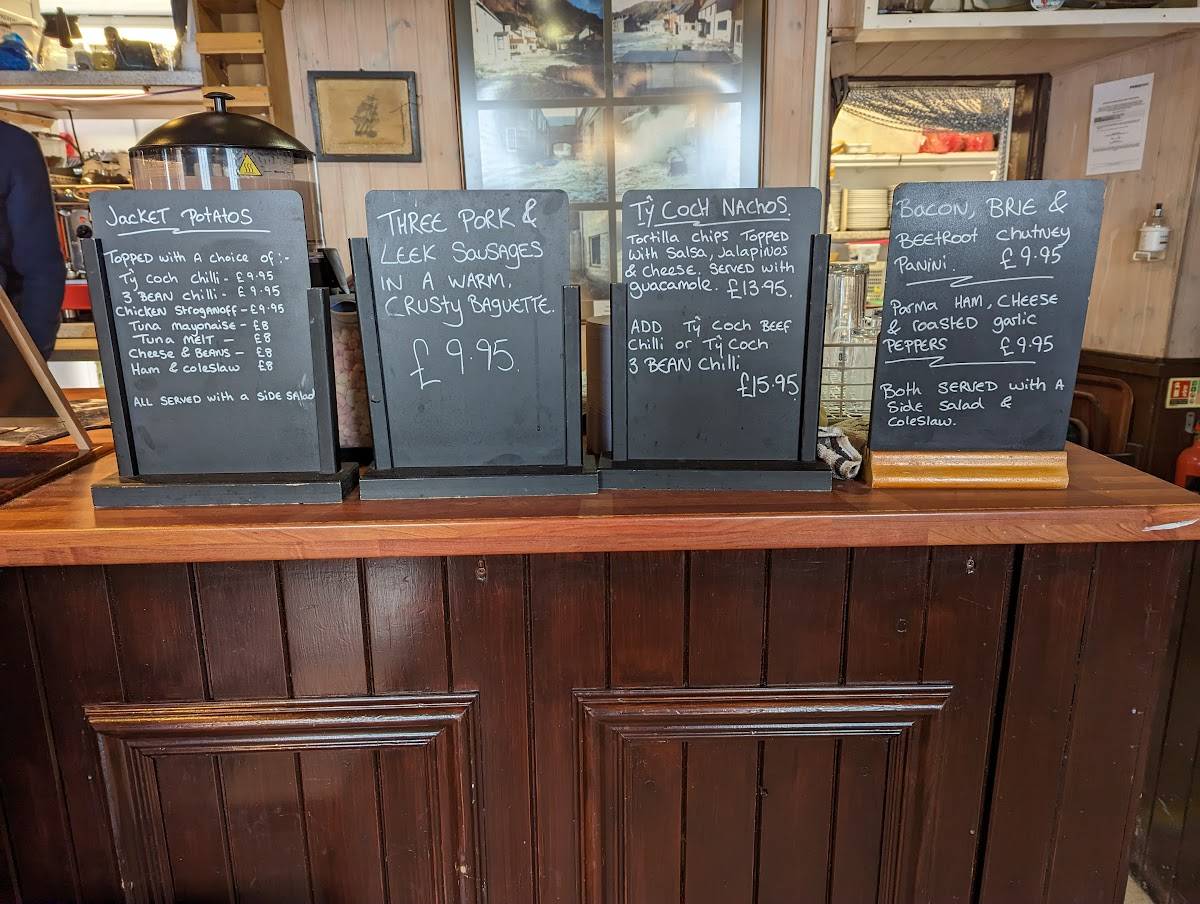 Jacket Potatos
Topped with A choice of:-
Tŷ Coch chilli - £9.95
3 BEAN chilli - £9.95
Chicken Stroganoff - £9.95
Tuna mayonaise - £8
Tuna melt - £8
Cheese & Beans - £8
Ham & coleslaw £8
All served with a side salad
THREE PORK &
LEEK SAUSAGES
IN A WARM,
CRUSTY BAGUETTE.
£9.95.
Tŷ Coch Nachos.
Tortilla chips Topped
with Salsa, Jalapinos
& cheese. Served with
guacamole. £13.95.
ADD Tŷ Coch Beef
Chilli or Tŷ Coch
3 BEAN Chilli.
£15.95
BACON, BRIE &
BEEtroot chutney
Panini. £9.95
Parma Ham, Cheese
& roasted garlic
Peppers £9.95
Both served with A
Side Salad &
coleslaw.